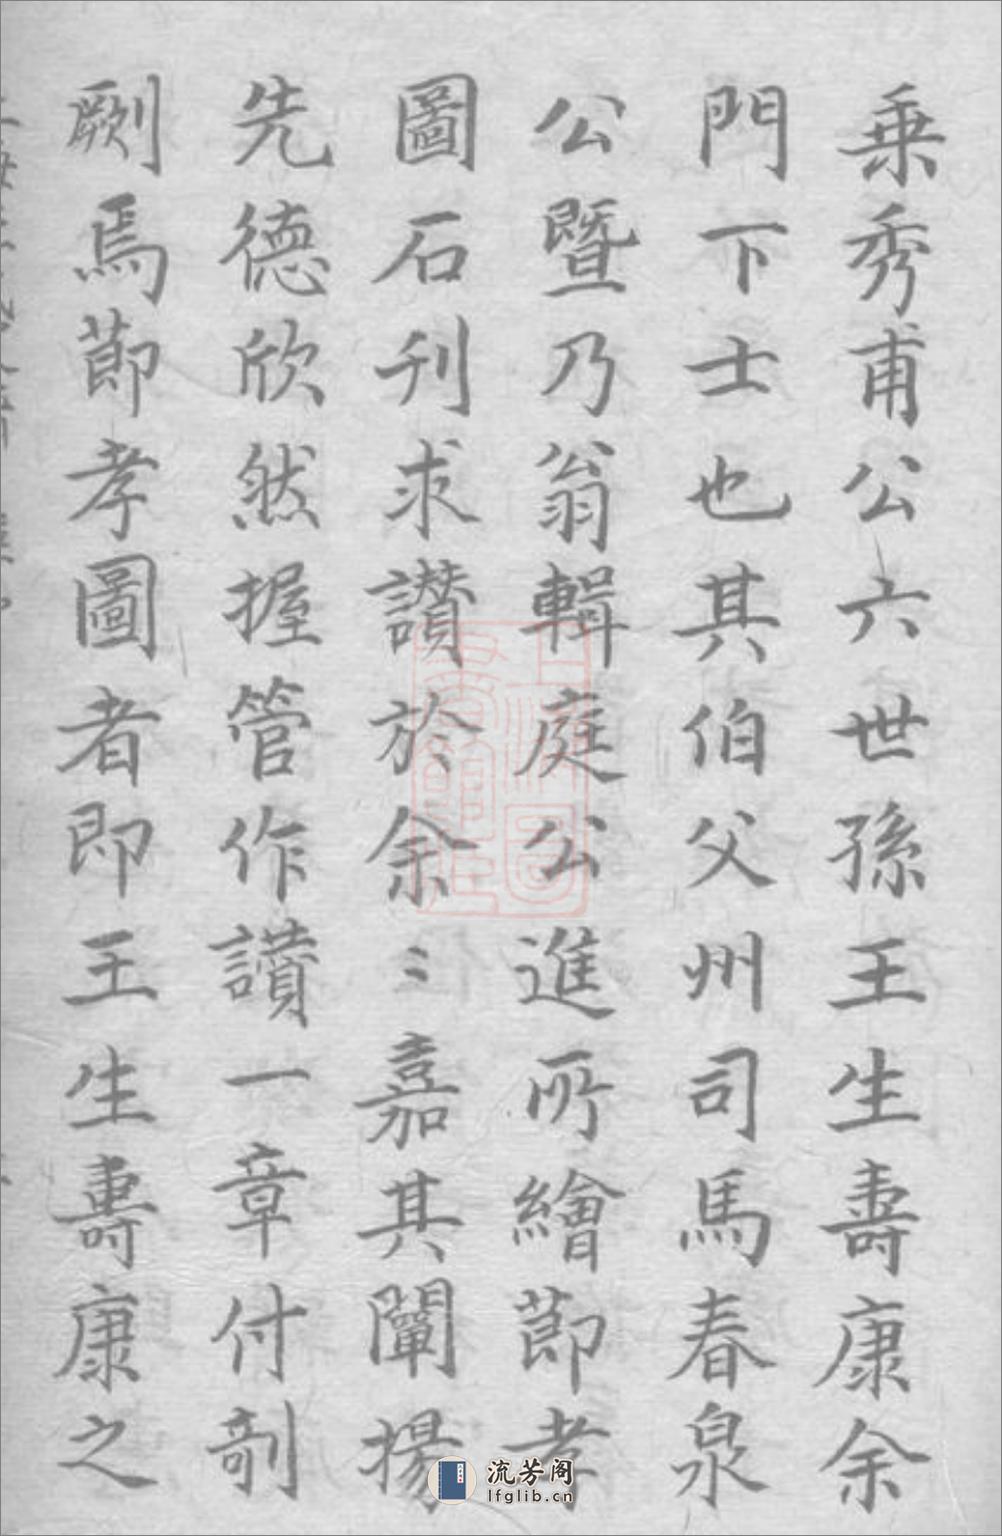 乗秀甫公六世孫王生壽康余
門下士也其伯父州司馬春泉
公暨乃翁輯庭公進所繪莭孝
圖石刋求讃於余〻嘉其闡揚
先德欣然握管作讃一章付剞
劂焉莭孝圖者即王生壽康之
流芳阁
lfglib.cn